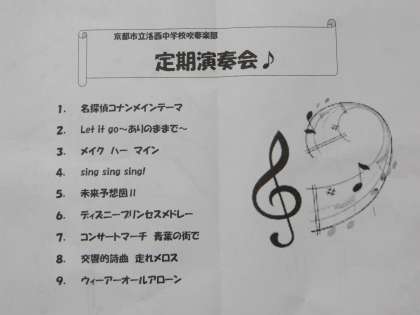 京都市立洛西中学校吹奏楽部
定期演奏会♪
1. 名探偵コナンメインテーマ
2. Let it go～ありのままで～
3. メイク ハー マイン
4. sing sing sing!
5. 未来予想図Ⅱ
6. ディズニープリンセスメドレー
7. コンサートマーチ 青葉の街で
8. 交響的詩曲 走れメロス
9. ウィーアーオールアローン